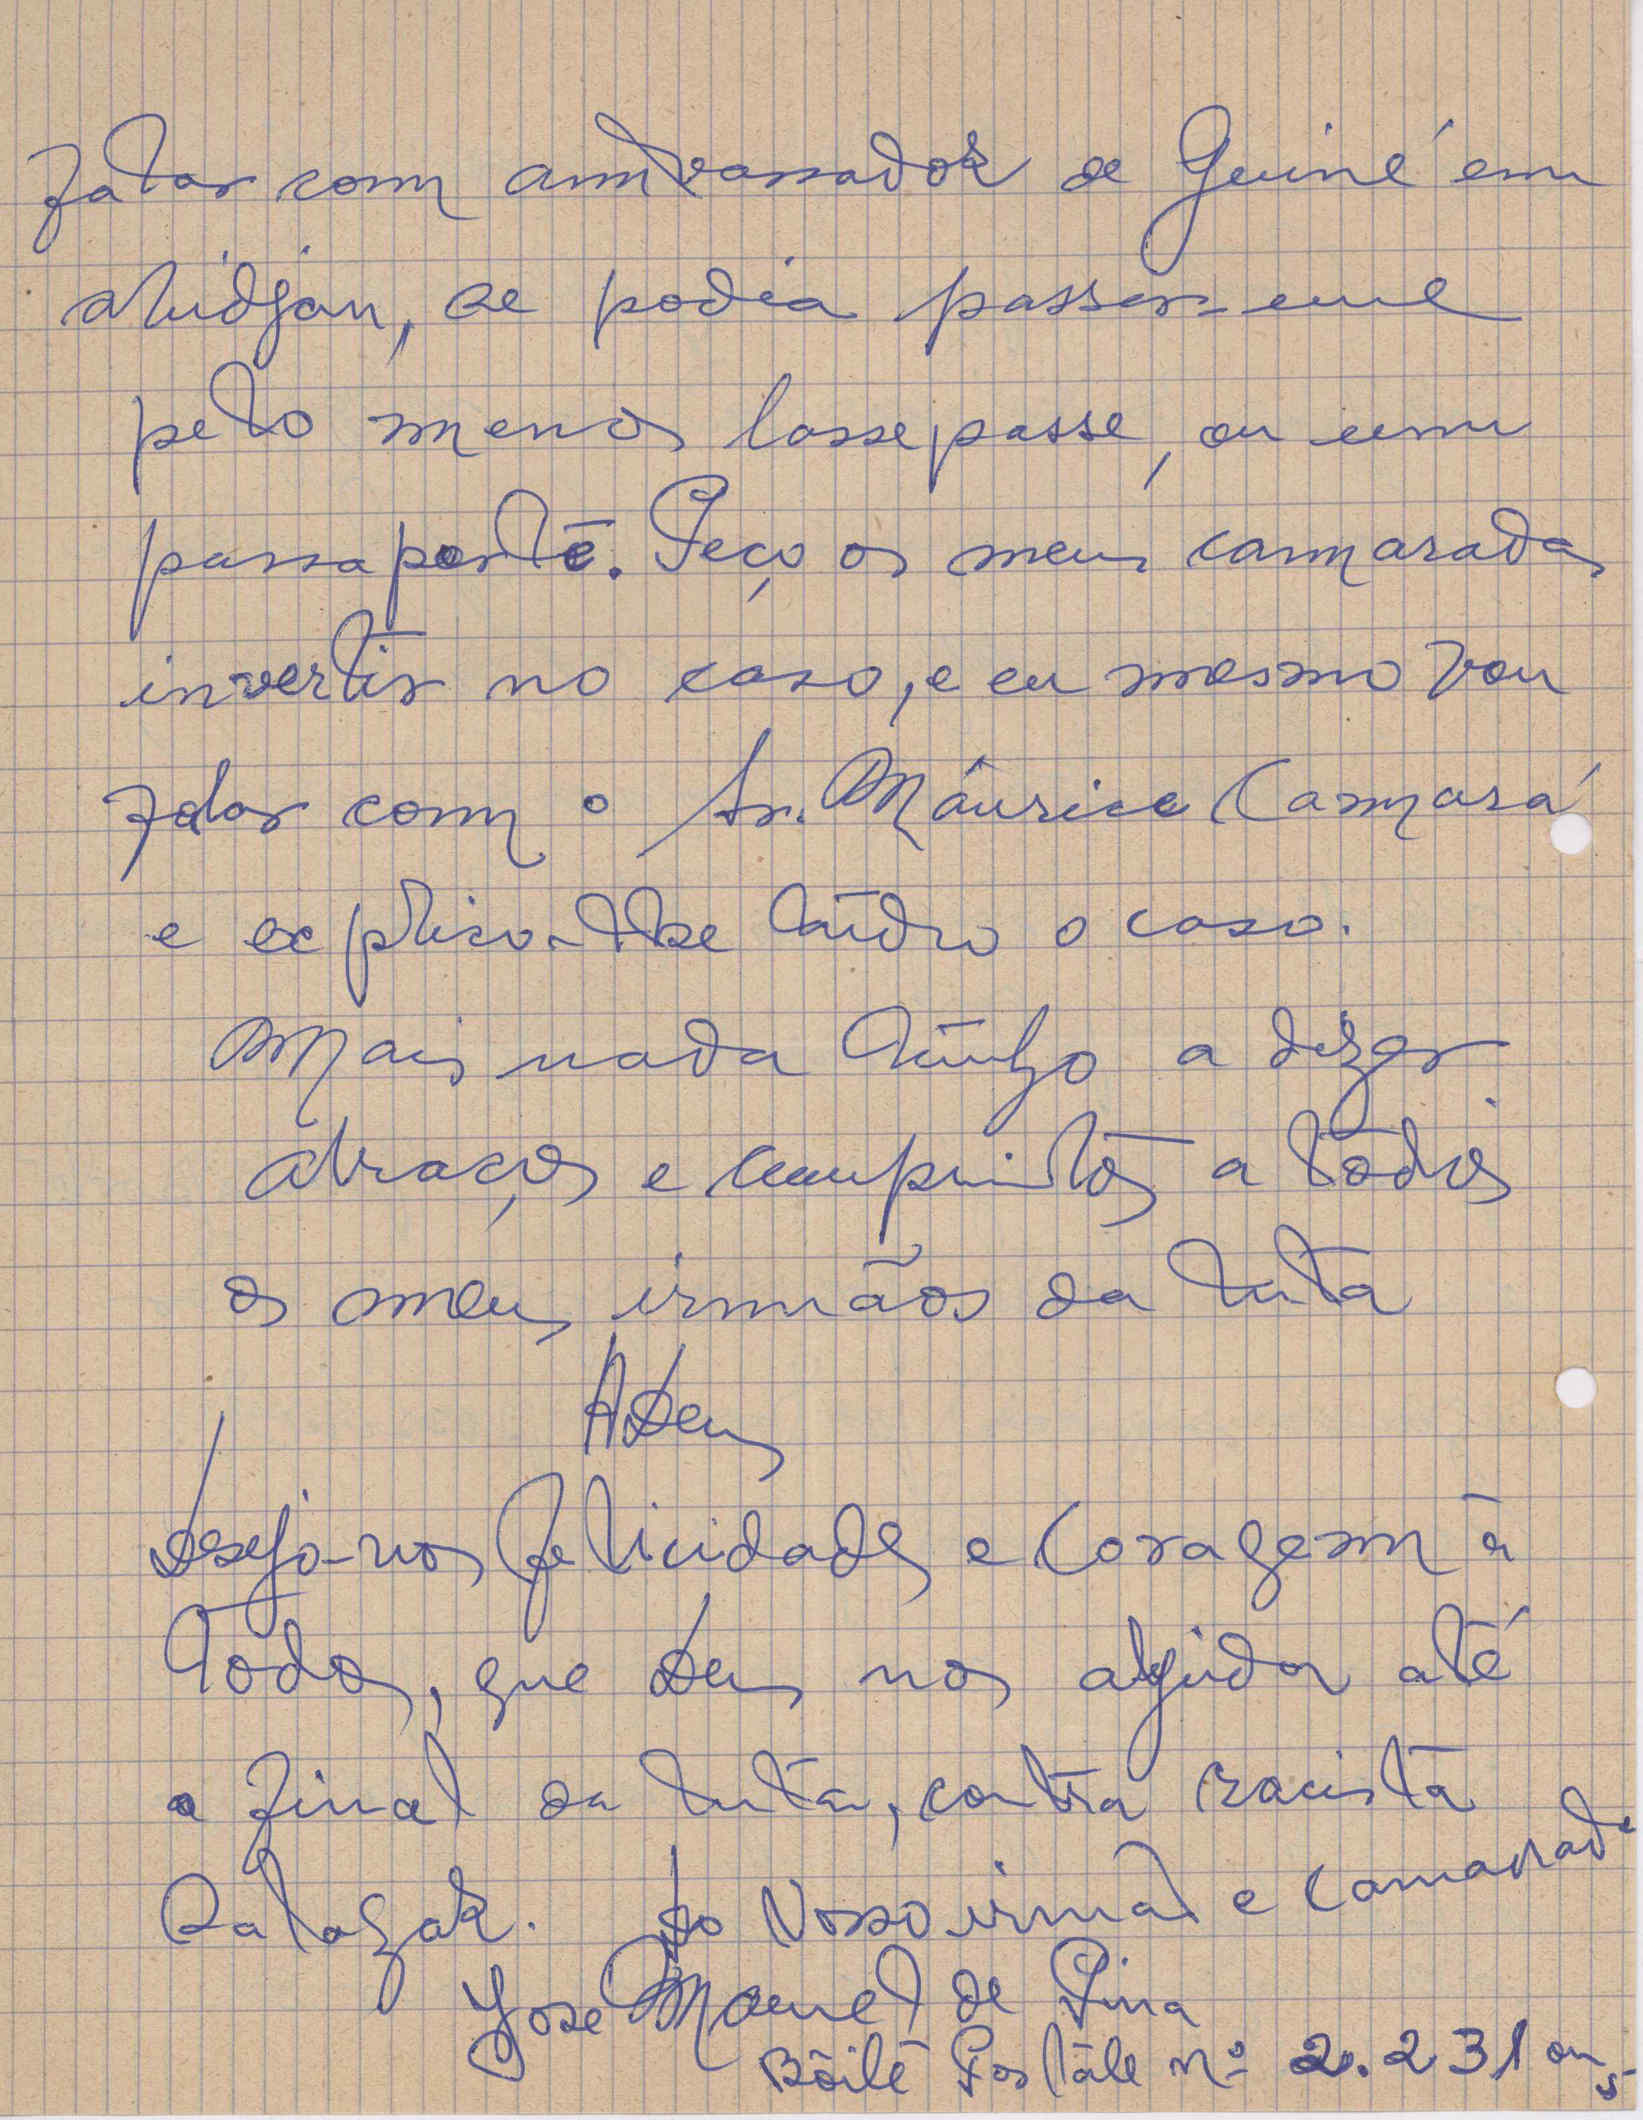 falar com ambassador de Guiné em
abidjan, se podia passar-me
pelo menos lassepasse, ou um
passaporte. Peço os meus camaradas
invertir no caso, e eu mesmo vou
falar com o Sr. Máurice Camará
e explico-lhe túdo o caso.
Mais nada tenho a dizer
abraços e cumprintos a todos
os meus irmãos da luta
Adeus
desejo-vos felicidades e Coragem à
Todos, que deus nos ajudar até
a final da luta, contra racista
Salazar. do Vosso irmão e Camarada
Jose Manuel de Pina
Bôite Postâle nº 20.231 ou